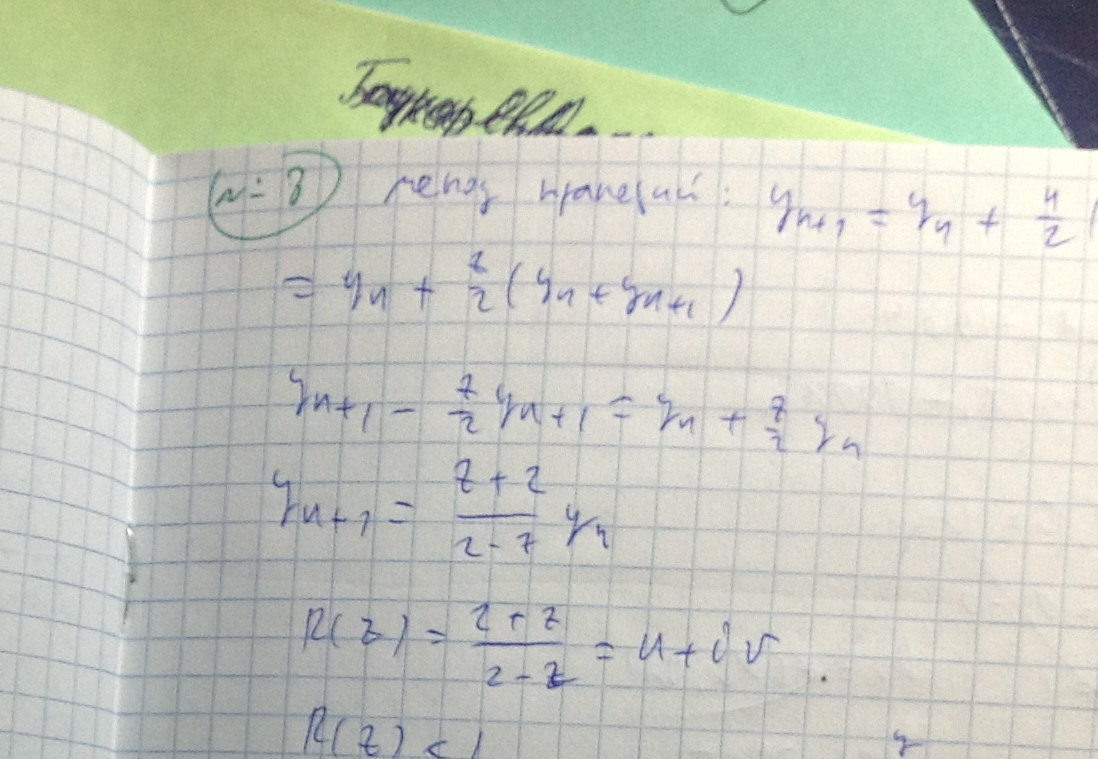 N=8 метод трапеций: y_{n+1} = y_n + \frac{h}{2}(
= y_n + \frac{z}{2}(y_n + y_{n+1})
y_{n+1} - \frac{z}{2} y_{n+1} = y_n + \frac{z}{2} y_n
y_{n+1} = \frac{z+2}{2-z} y_n
R(z) = \frac{2+z}{2-z} = u + iv
R(z) < 1